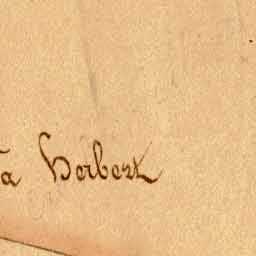 a Herbert